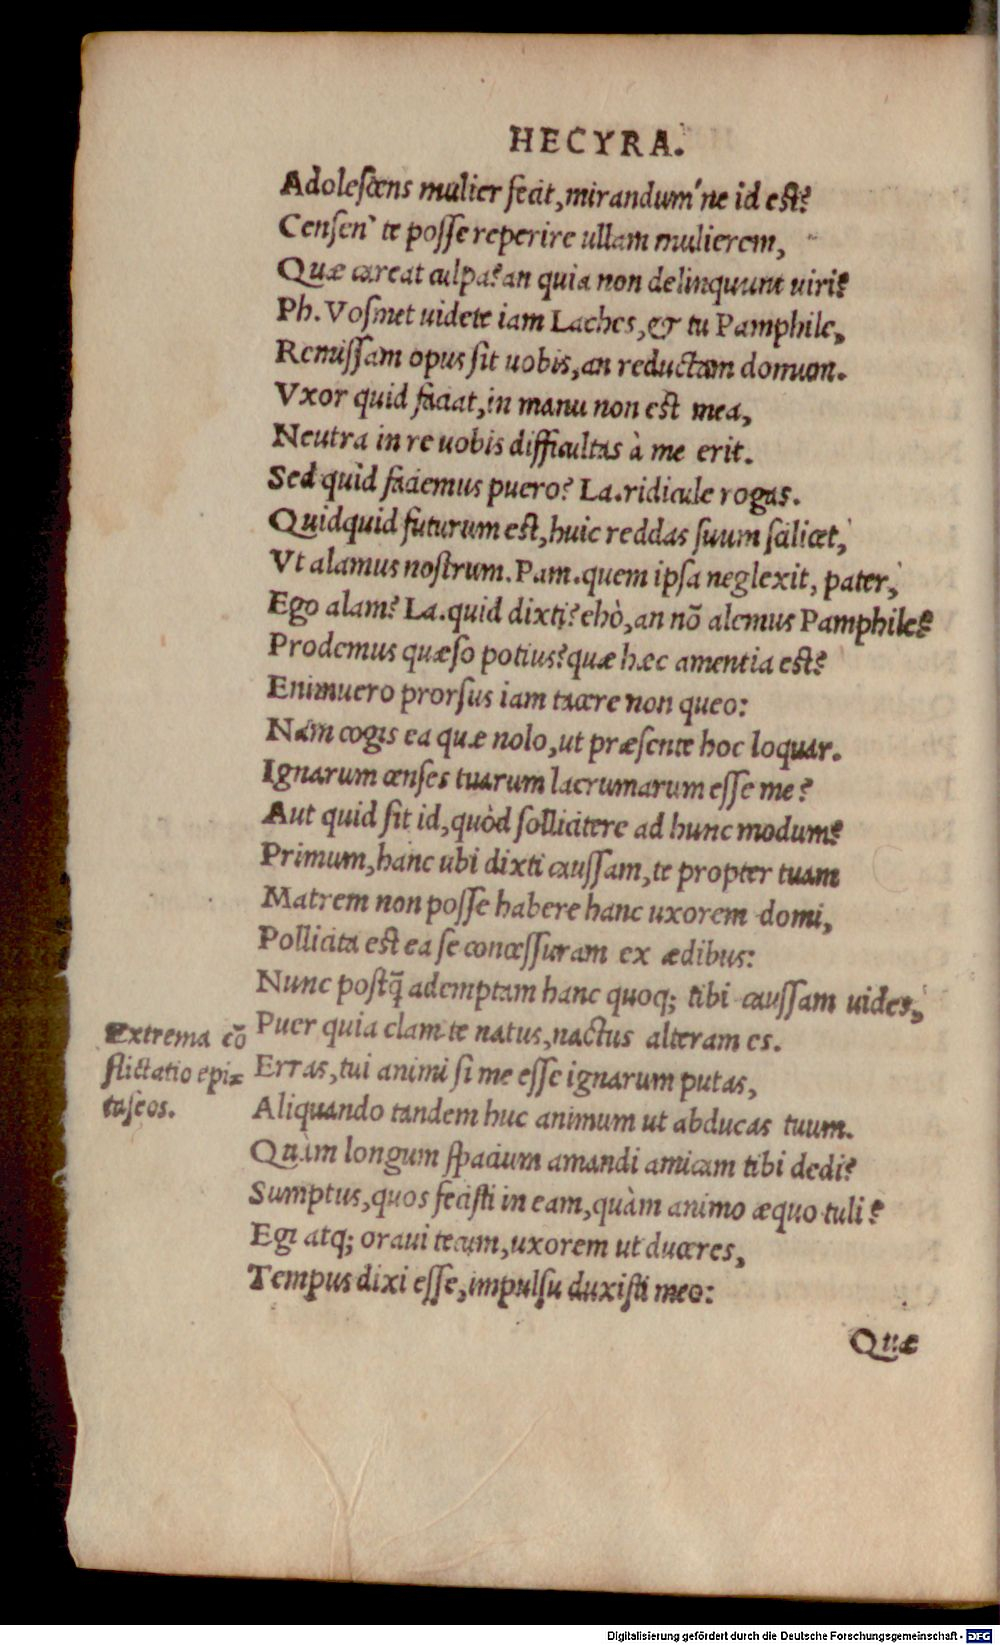 HECYRA.
Adolescens mulier fecit, mirandum'ne id est?
Censen' te posse reperire ullam mulierem,
Quæ careat culpa? an quia non delinquunt uiri?
Ph. Vosmet uidete iam Laches, & tu Pamphile,
Remissam opus sit uobis, an reductam domum.
Vxor quid faciat, in manu non est mea,
Neutra in re uobis difficultas à me erit.
Sed quid faciemus puero? La. ridicule rogas.
Quidquid futurum est, huic reddas suum scilicet,
Vt alamus nostrum. Pam. quem ipsa neglexit, pater,
Ego alam? La. quid dixti? ehò, an nō alemus Pamphile?
Prodemus quæso potius? quæ hæc amentia est?
Enimuero prorsus iam tacere non queo:
Nam cogis ea quæ nolo, ut præsente hoc loquar.
Ignarum censes tuarum lacrumarum esse me?
Aut quid sit id, quòd sollicitere ad hunc modum?
Primum, hanc ubi dixti caussam, te propter tuam
Matrem non posse habere hanc uxorem domi,
Pollicita est ea se concessuram ex ædibus:
Nunc postq̃ ademptam hanc quoq; tibi caussam uides,
Puer quia clam te natus, nactus alteram es.
Erras, tui animi si me esse ignarum putas,
Aliquando tandem huc animum ut abducas tuum.
Quàm longum spacium amandi amicam tibi dedi?
Sumptus, quos fecisti in eam, quàm animo æquo tuli?
Egi atq; oraui tecum, uxorem ut duceres,
Tempus dixi esse, impulsu duxisti meo:
Quæ
Extrema cō
flictatio epi=
taseos.
Digitalisierung gefördert durch die Deutsche Forschungsgemeinschaft - DFG